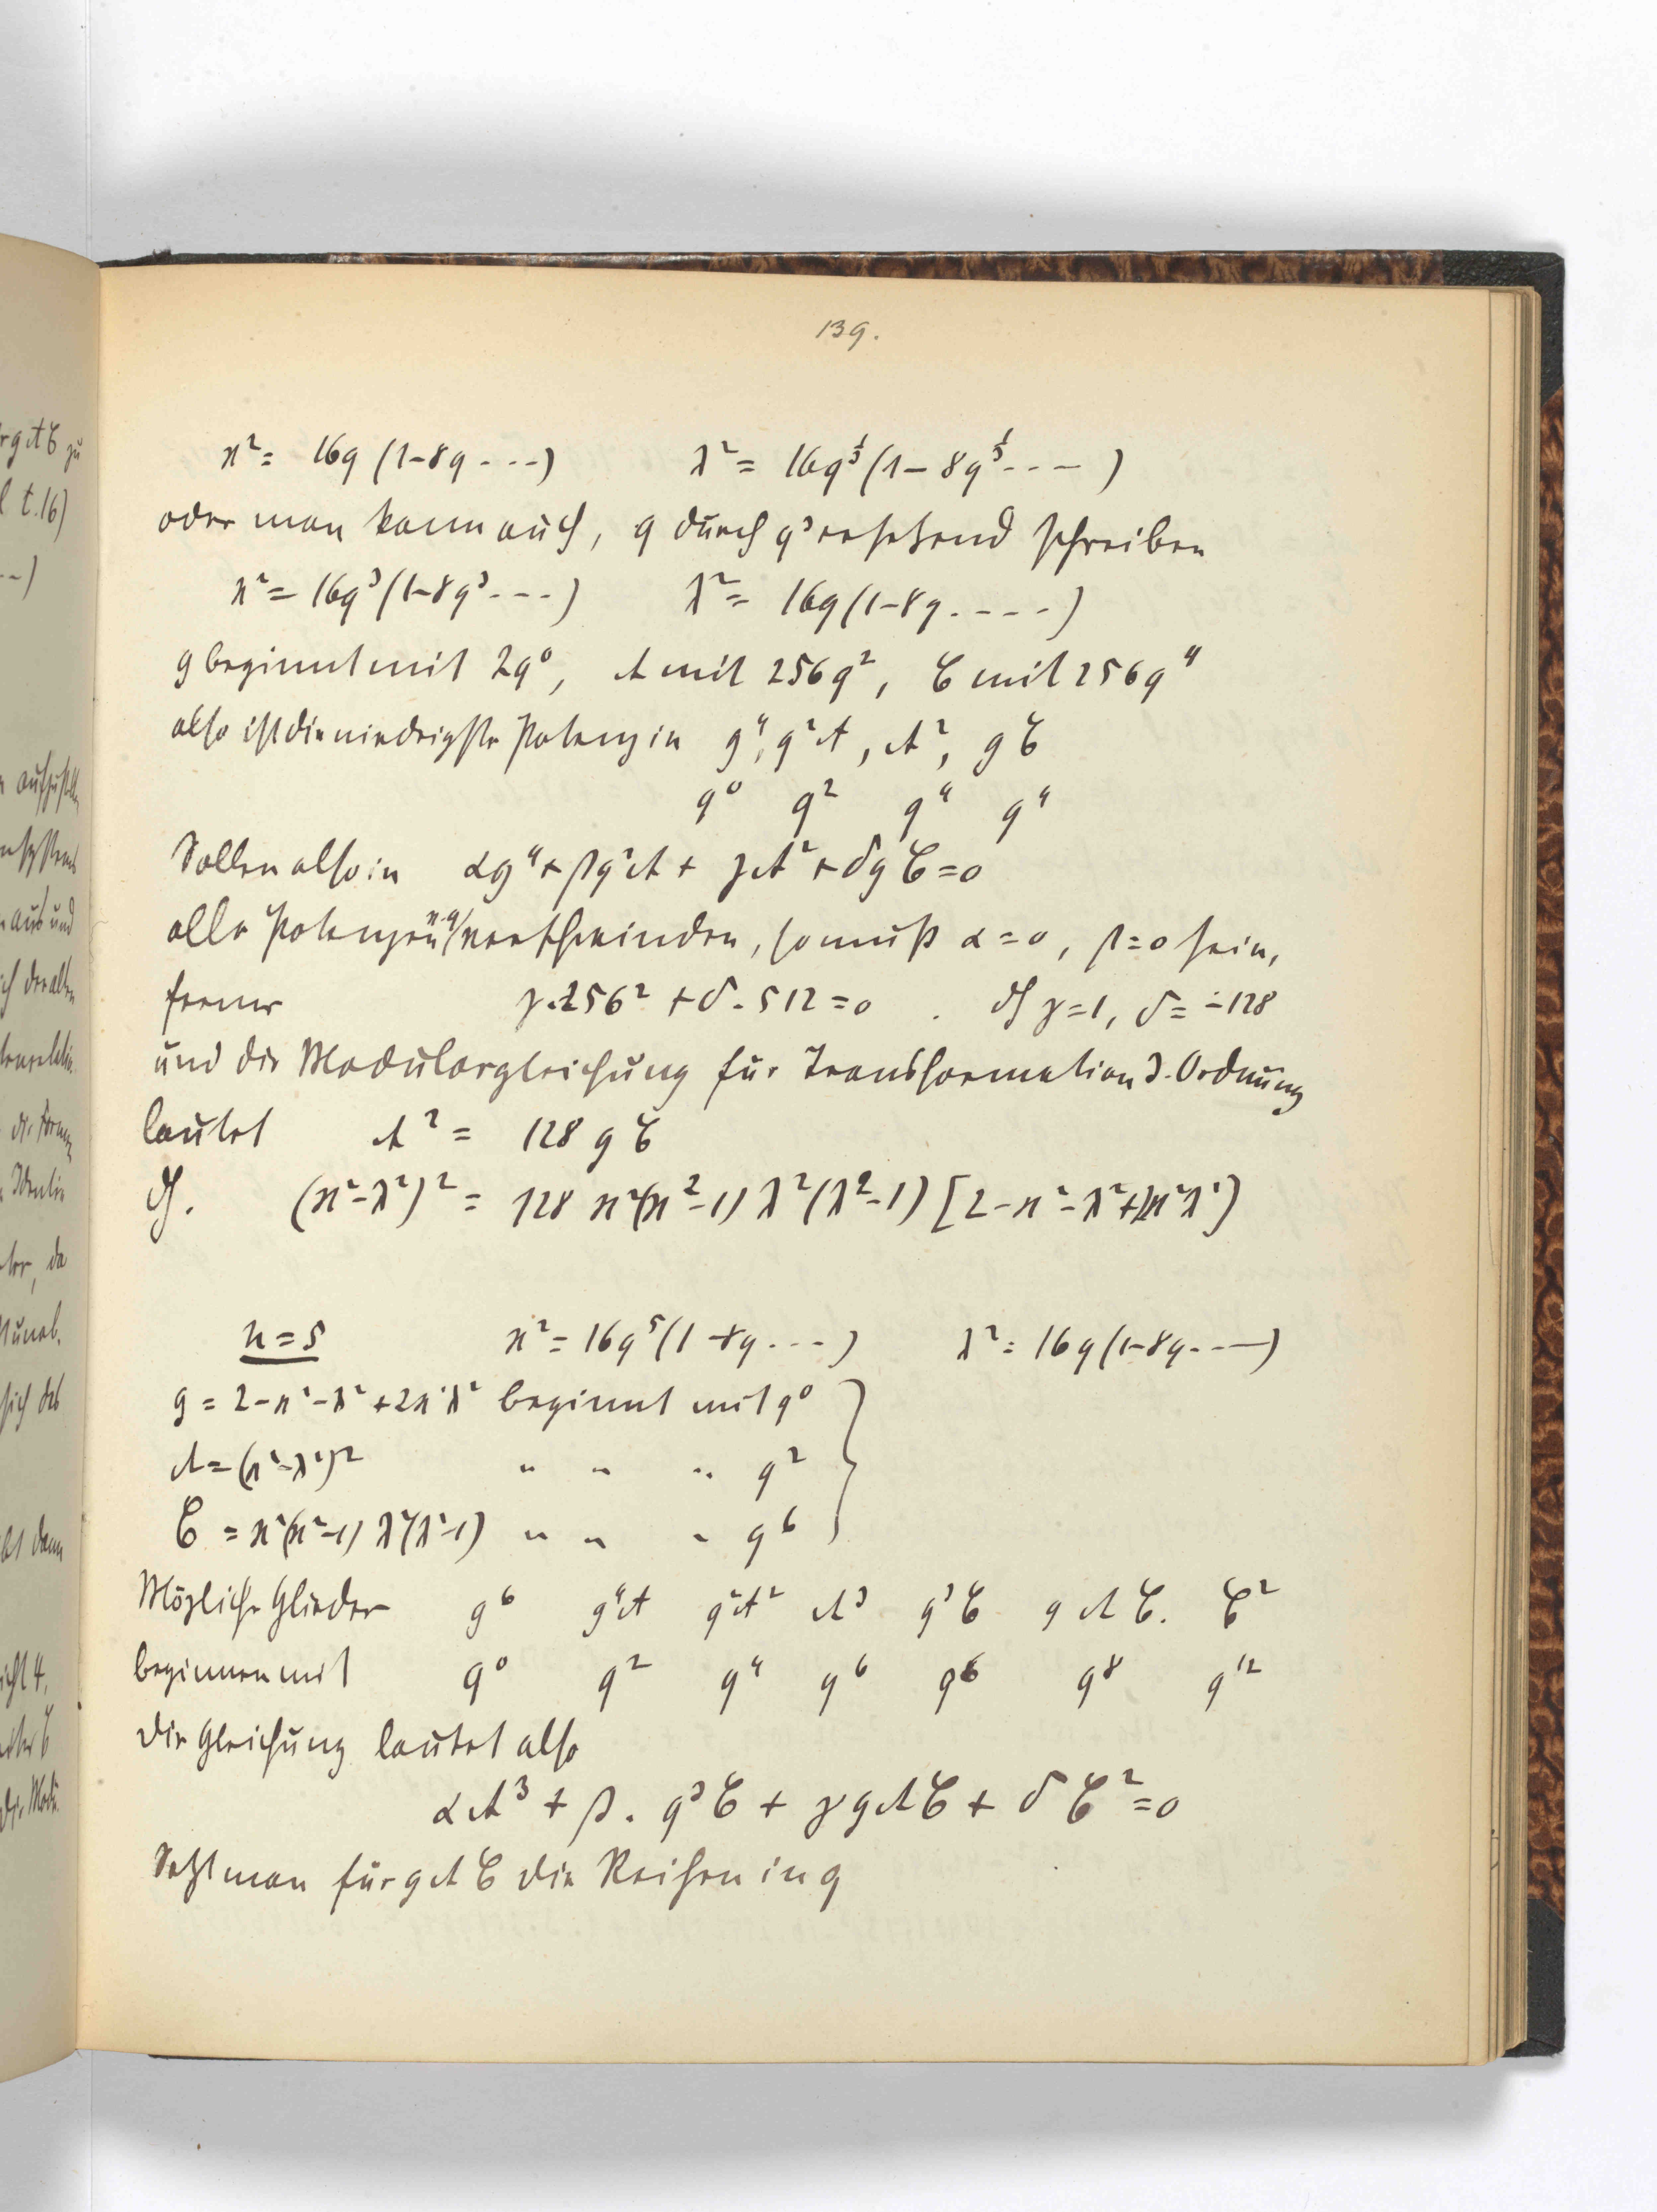 139.
ϰ² = 16q (1-8q ---) λ² = 16q^⅓ (1-8q^⅓ --- )
oder man kann auch, q durch q³ ersetzend schreiben
ϰ² = 16q³ (1-8q³ ---) λ² = 16q (1-8q. ----)
g beginnt mit 2q⁰, A mit 256q², C mit 256q⁴
also ist die niedrigste Potenz in g⁴, g²A, A², gC
q⁰ q² q⁴ q⁴
Sollen also in αg⁴ + βg²A + γA² + δgC = 0
alle Potenzen v. q verschwinden, so muß α = 0, β = 0 sein,
ferner γ.256² + δ.512 = 0 . dh γ = 1, δ = -128
und die Modulargleichung für Transformation 3. Ordnung
lautet A² = 128 gC
dh. (ϰ²-λ²)² = 128 ϰ²(ϰ²-1) λ²(λ²-1) [2-ϰ²-λ²+2ϰ²λ²]
n = 5 ϰ² = 16q⁵ (1-8q ---) λ² = 16q (1-8q ---)
g = 2-ϰ²-λ²+2ϰ²λ² beginnt mit q⁰
A = (ϰ²-λ²)² " " " q²
C = ϰ²(ϰ²-1) λ²(λ²-1) " " " q⁶
Mögliche Glieder g⁶ g⁴A g²A² A³ g³C gAC. C²
beginnen mit q⁰ q² q⁴ q⁶ q⁶ q⁸ q¹²
Die Gleichung lautet also
αA³ + β. g³C + γgAC + δC² = 0
Setzt man für gAC die Reihen in q